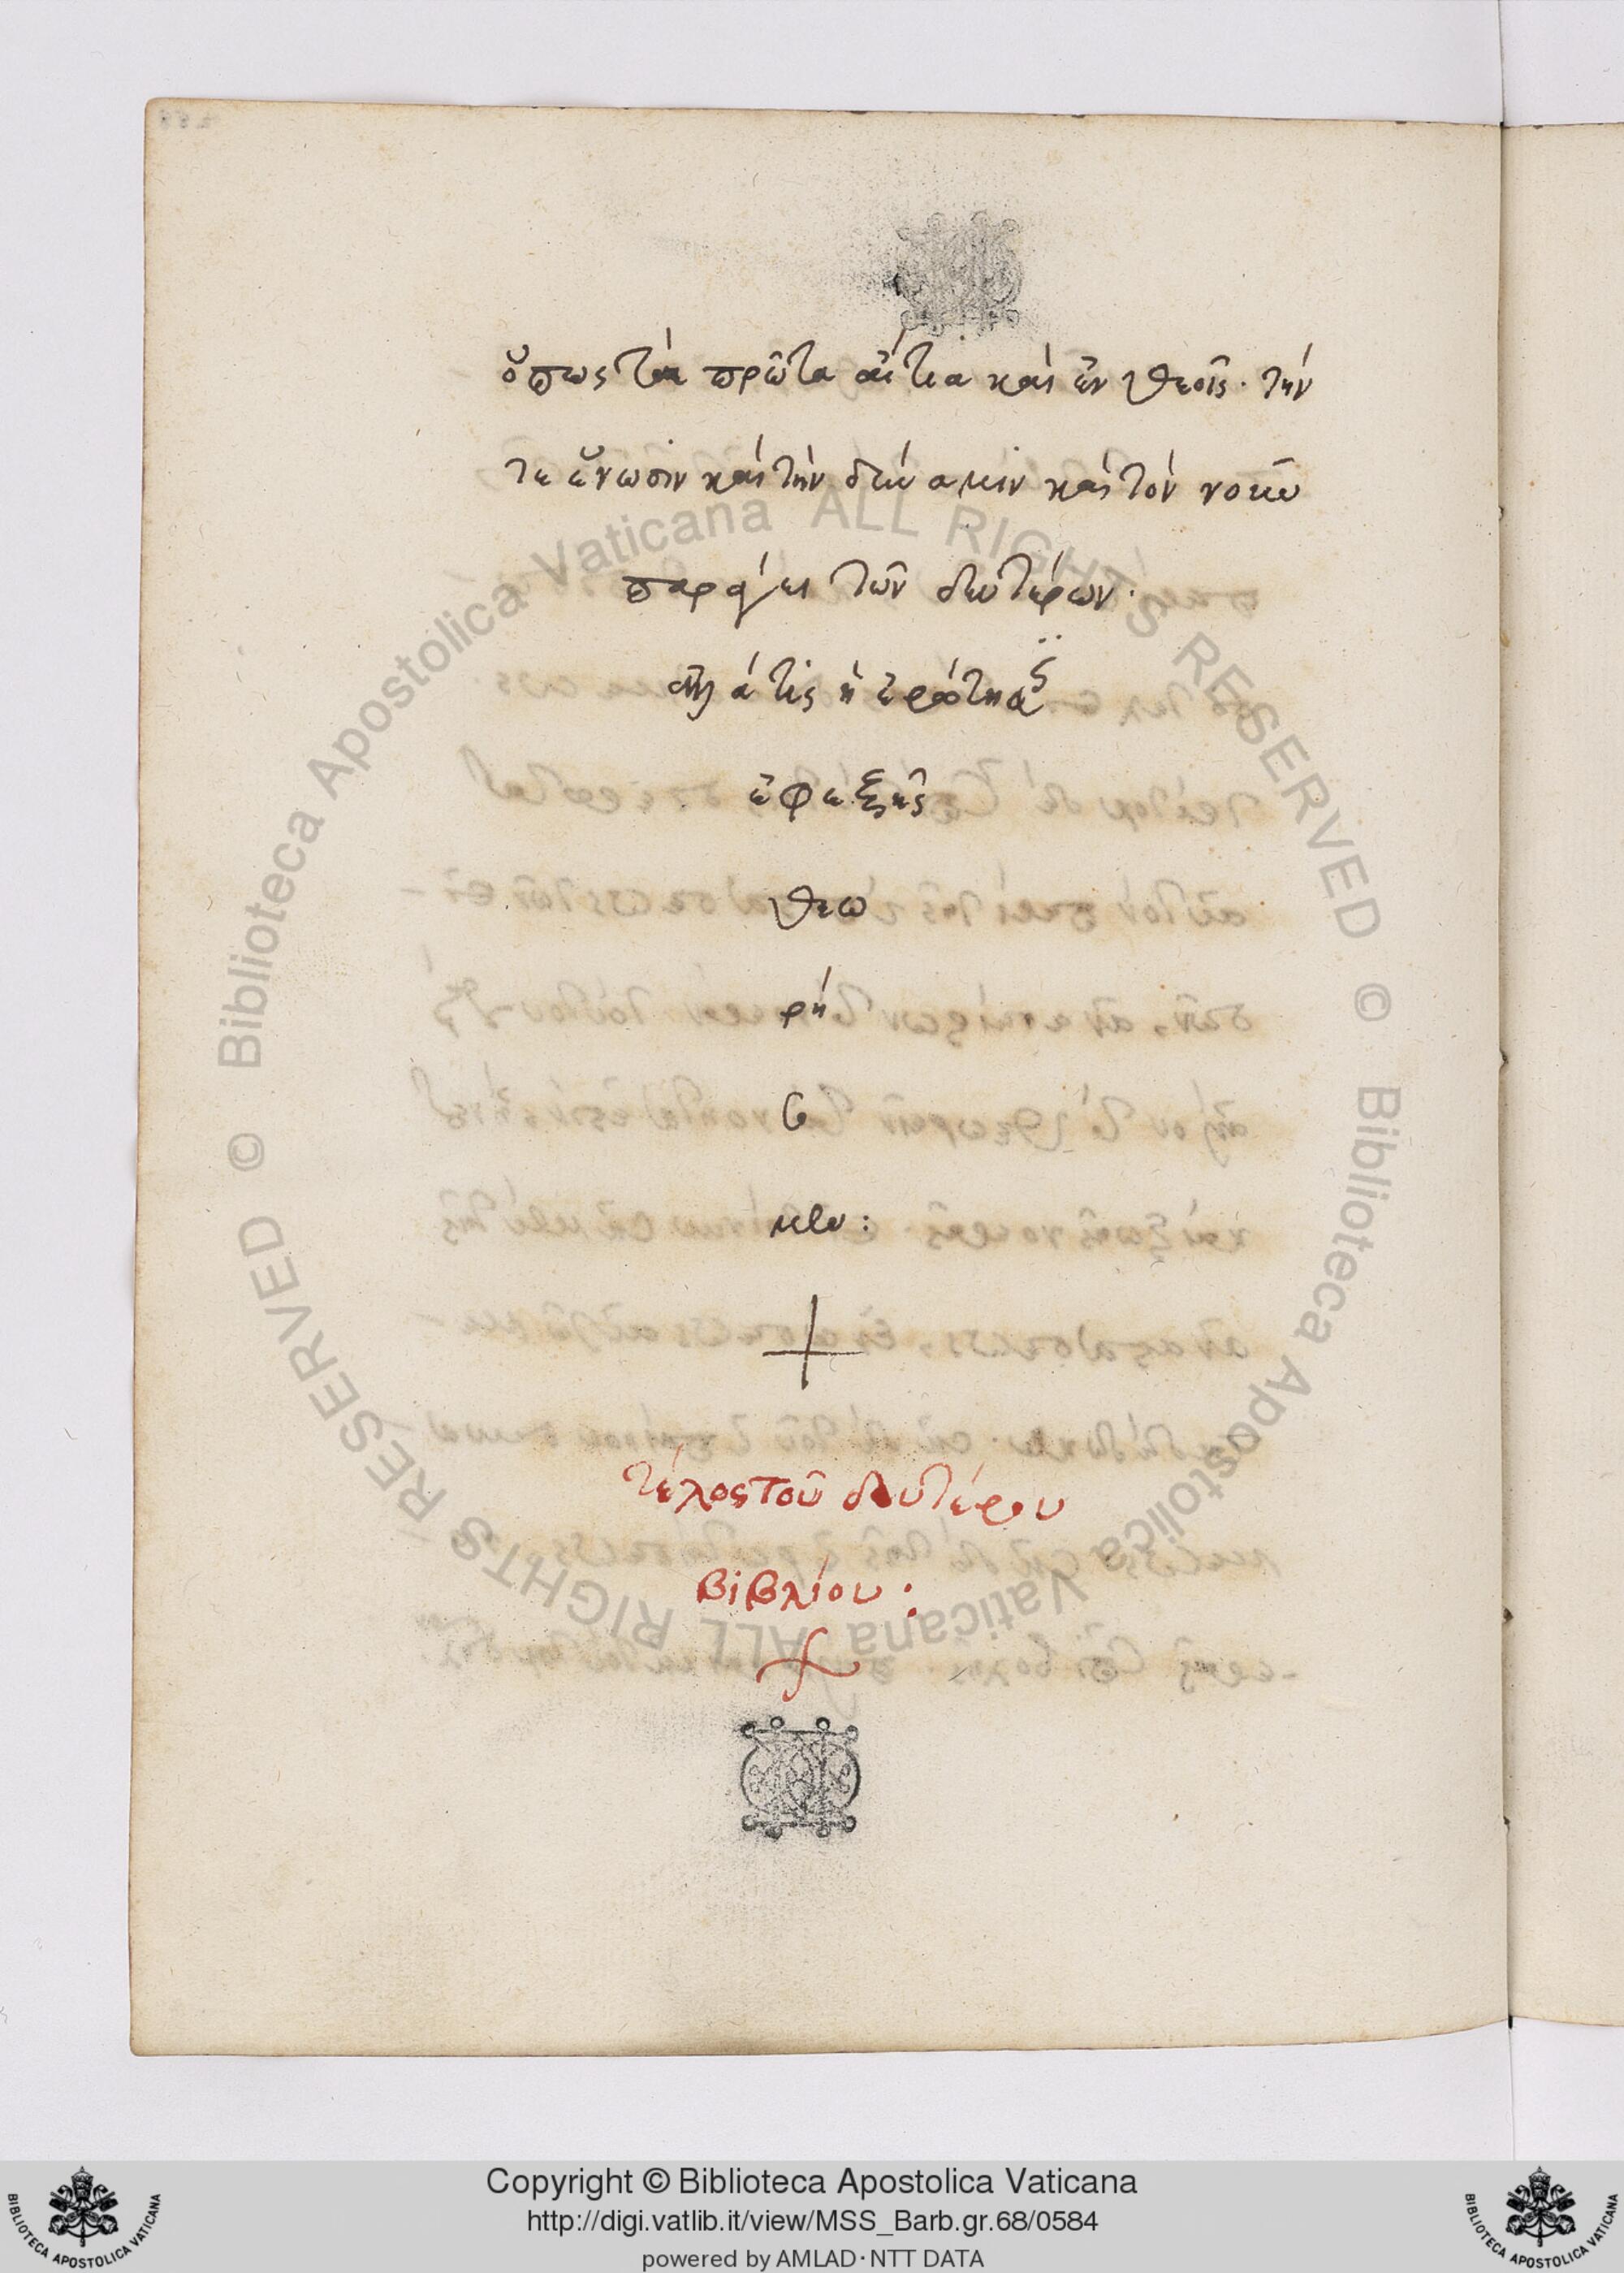 ὅπως τὰ πρῶτα αἴτια καὶ ἐν θεοῖς· τήν
τε ἕνωσιν καὶ τὴν δύναμιν καὶ τὸν νοῦν
παράγει τῶν δευτέρων·
ἐφεξῆς
θεω
ρή
σω
μεν:
τέλος τοῦ δευτέρου
βιβλίου:
© Biblioteca Apostolica Vaticana ALL RIGHTS RESERVED
© Biblioteca Apostolica Vaticana ALL RIGHTS RESERVED
Copyright © Biblioteca Apostolica Vaticana
http://digi.vatlib.it/view/MSS_Barb.gr.68/0584
powered by AMLAD·NTT DATA
BIBLIOTECA APOSTOLICA VATICANA
BIBLIOTECA APOSTOLICA VATICANA